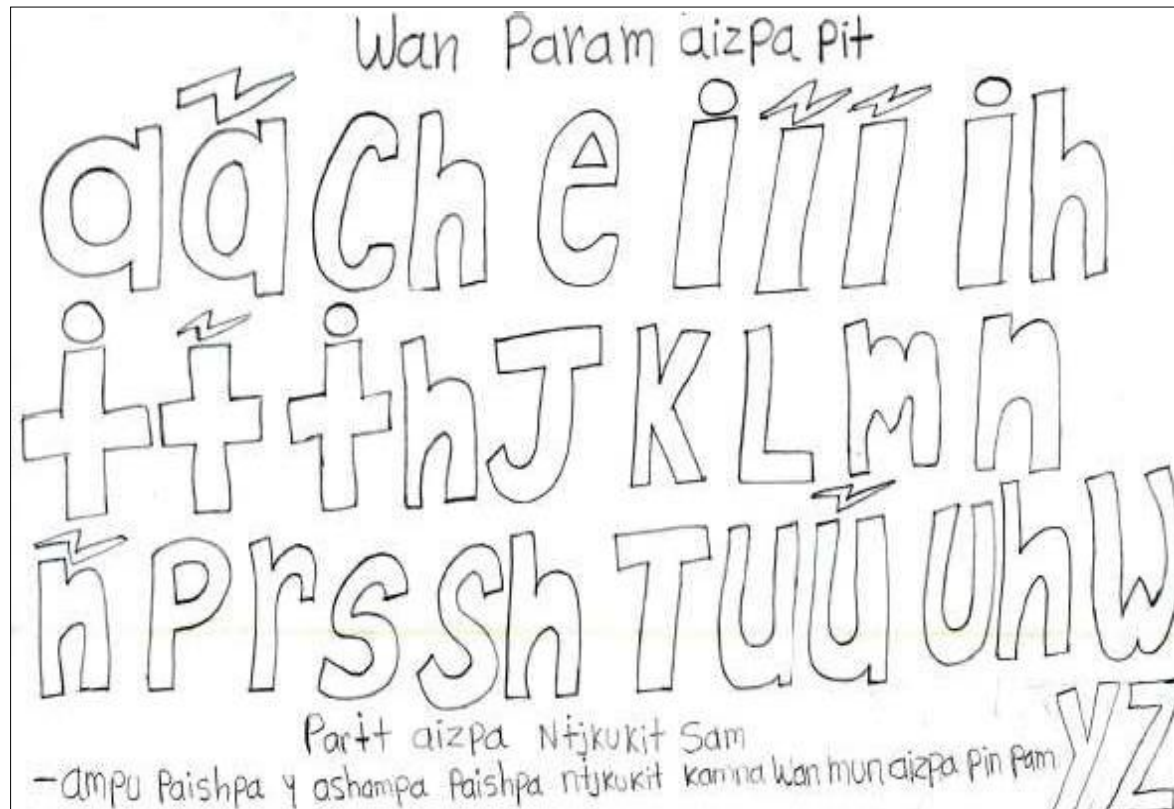 Wan Param aizpa pɨt
a ã ch e i ĩ ĩ ih
ɨ ɨ̃ ɨh J K L m n
ñ P r s Sh T u ũ Uh W
Y Z
Parɨt aizpa Nɨjkukit Sam
- ampu Paishpa y ashampa Paishpa nɨjkukit kamna wan mun aizpa pin pam